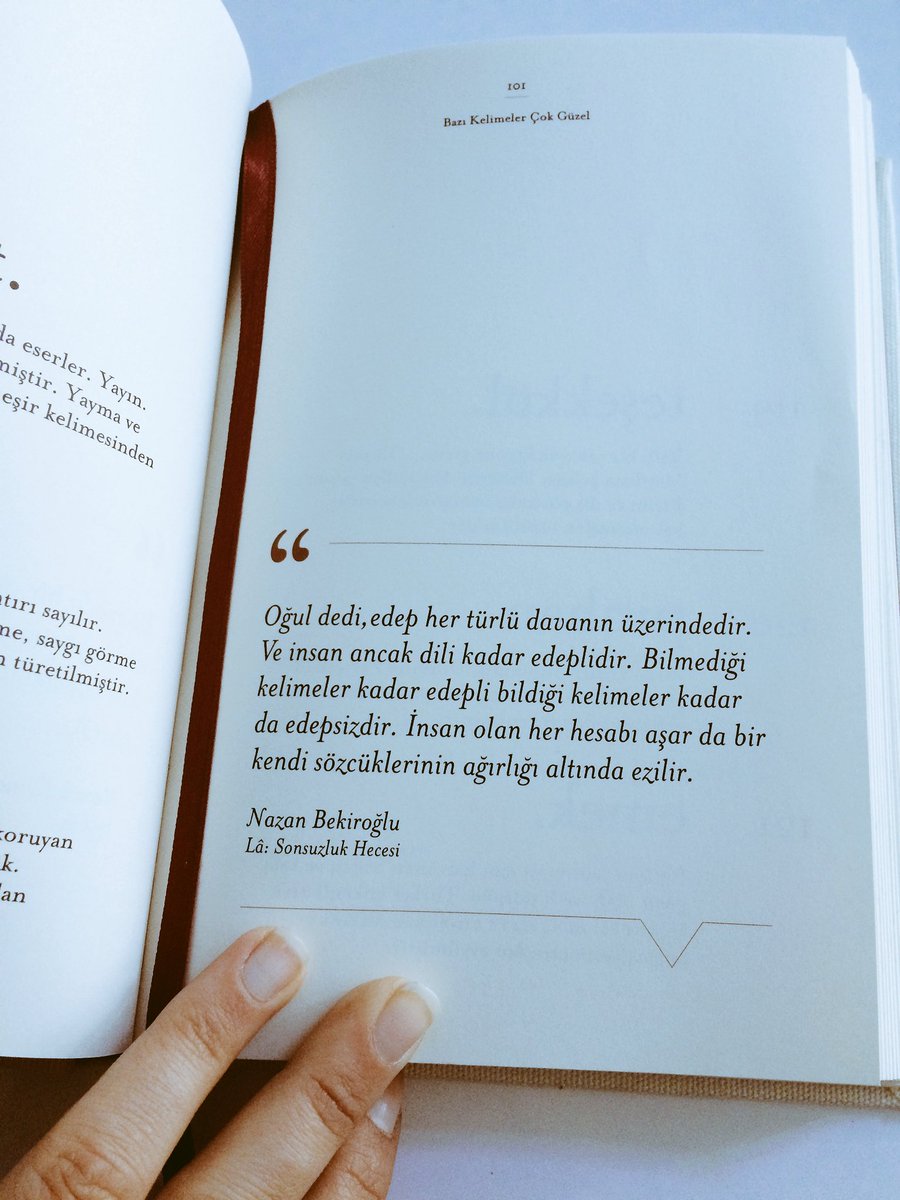 da eserler. Yayın.
miştir. Yayma ve
eşir kelimesinden
sayılır.
saygı görme
türetilmiştir.
koruyan
101
Bazı Kelimeler Çok Güzel
“
Oğul dedi, edep her türlü davanın üzerindedir.
Ve insan ancak dili kadar edeplidir. Bilmediği
kelimeler kadar edepli bildiği kelimeler kadar
da edepsizdir. İnsan olan her hesabı aşar da bir
kendi sözcüklerinin ağırlığı altında ezilir.
Nazan Bekiroğlu
Lâ: Sonsuzluk Hecesi